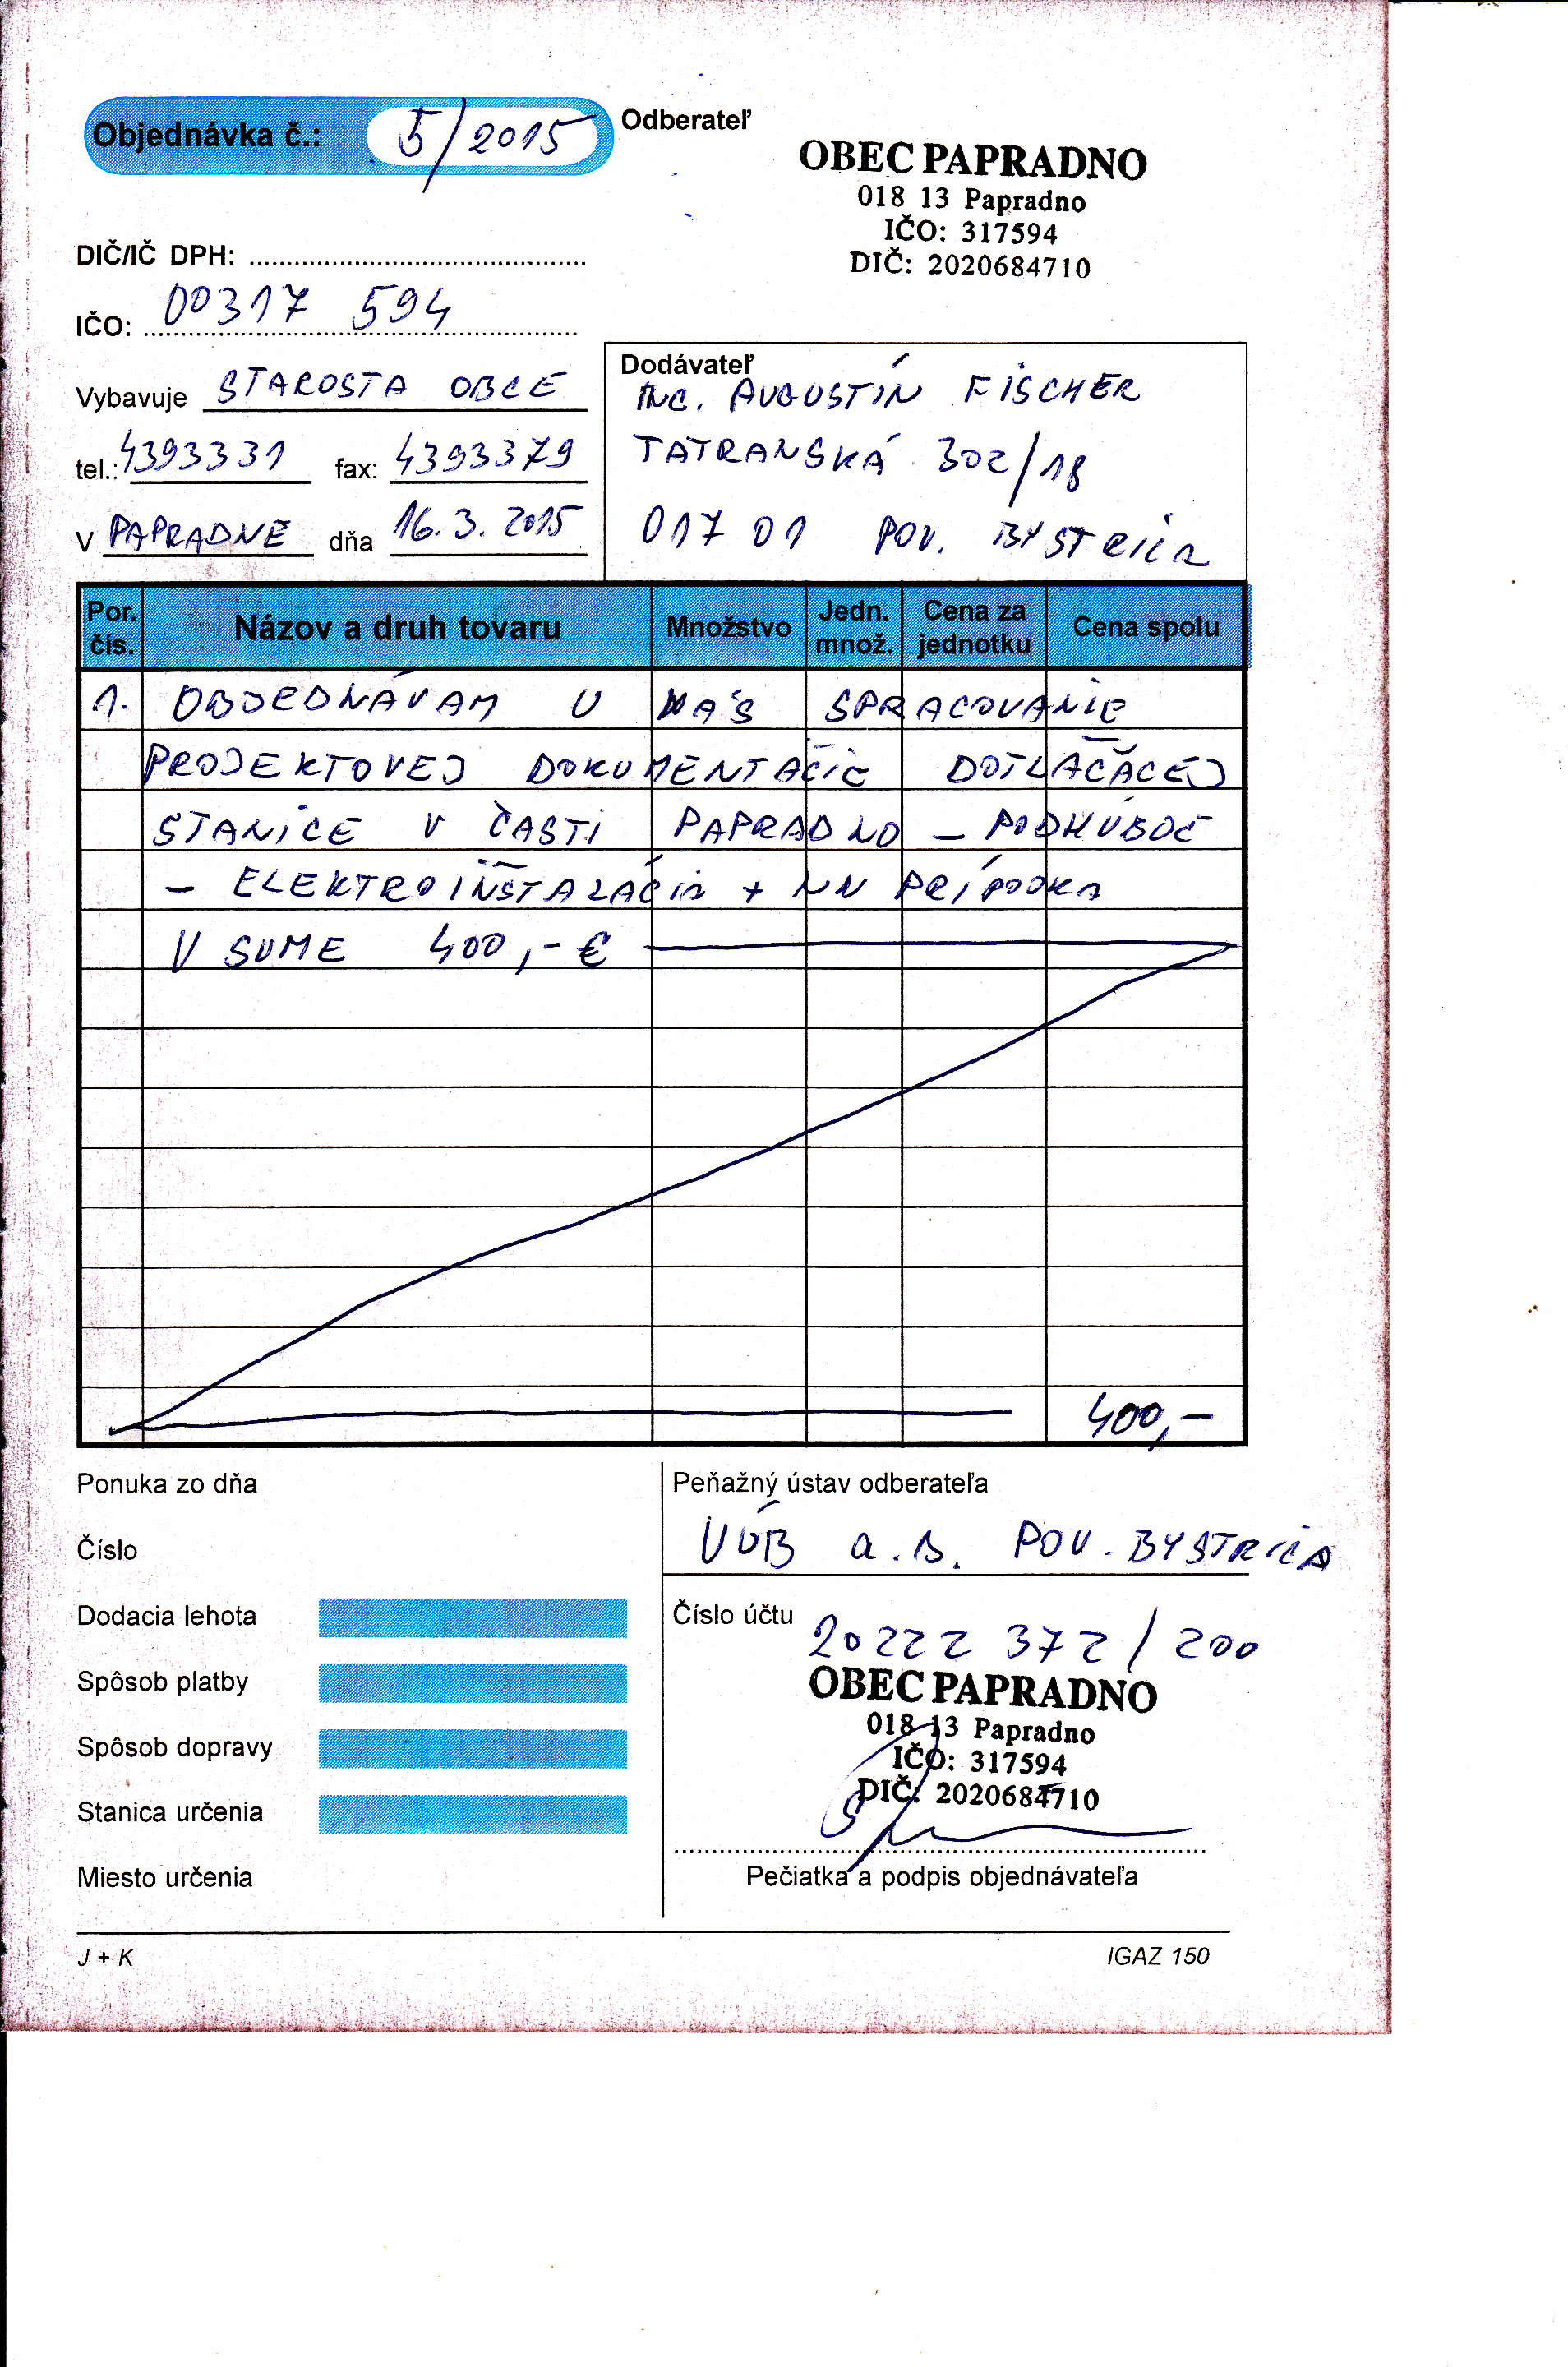 Objednávka č.: 5/2015
Odberateľ
OBEC PAPRADNO
018 13 Papradno
IČO: 317594
DIČ: 2020684710
DIČ/IČ DPH:
IČO: 00317 594
Vybavuje STAROSTA OBCE
tel.: 4393331 fax: 4393379
V PAPRADNE dňa 16.3.2015
Dodávateľ
ING. AUGUSTÍN FISCHER
TATRANSKÁ 302/18
017 01 POV. BYSTRICA
Por. čís. Názov a druh tovaru Množstvo Jedn. množ. Cena za jednotku Cena spolu
1. OBJEDNÁVAM U VÁS SPRACOVANIE
PROJEKTOVEJ DOKUMENTÁCIE DOTLÁČACEJ
STANICE V ČASTI PAPRADNO - PODHÚBOČ
- ELEKTROINŠTALÁCIA + NN PRÍPOJKA
V SUME 400,- €
400,-
Ponuka zo dňa
Číslo
Dodacia lehota
Spôsob platby
Spôsob dopravy
Stanica určenia
Miesto určenia
Peňažný ústav odberateľa
VÚB a.s. POV. BYSTRICA
Číslo účtu 20222 372/200
OBEC PAPRADNO
018 13 Papradno
IČO: 317594
DIČ: 2020684710
Pečiatka a podpis objednávateľa
J + K
IGAZ 150